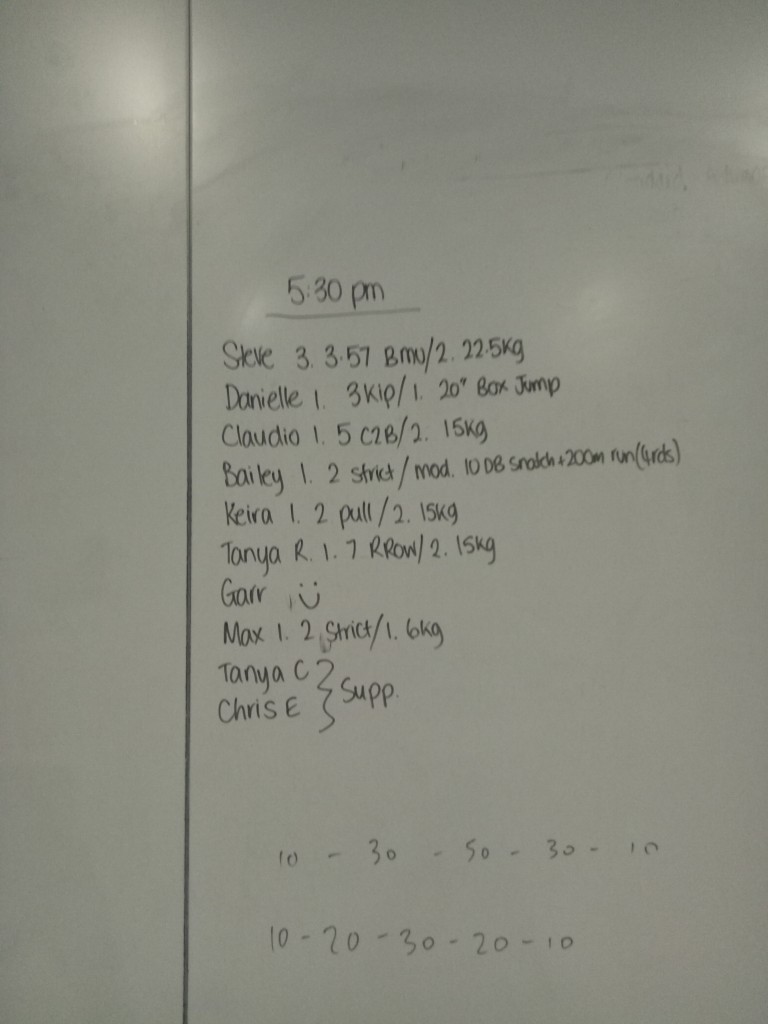 5:30 pm
Steve 3. 3:57 BMU/2. 22.5kg
Danielle 1. 3Kip/1. 20" Box Jump
Claudio 1. 5 C2B/2. 15kg
Bailey 1. 2 strict/mod. 10 DB snatch+200m run(4rds)
Keira 1. 2 pull/2. 15kg
Tanya R. 1. 7 RRow/2. 15kg
Garr
Max 1. 2 Strict/1. 6kg
Tanya C
Chris E } Supp.
10 - 30 - 50 - 30 - 10
10 - 20 - 30 - 20 - 10